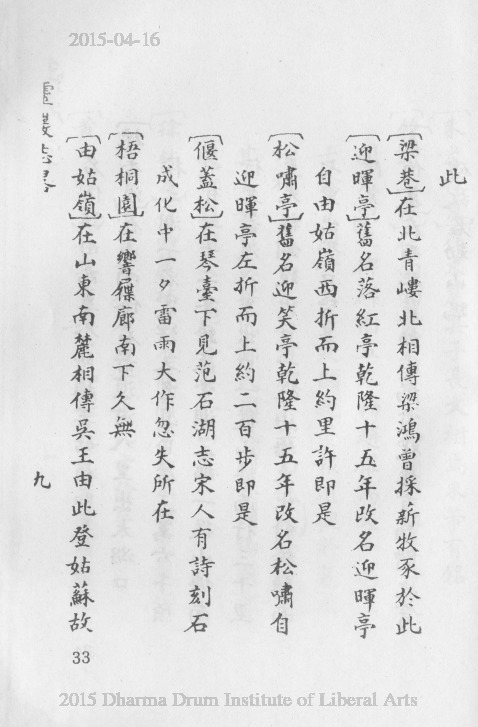 2015-04-16
此
【梁巷】在北青嶁北相傳梁鴻曾採薪牧豕於此
【迎暉亭】舊名落紅亭乾隆十五年改名迎暉亭
自由姑嶺西折而上約里許即是
【松嘯亭】舊名迎笑亭乾隆十五年改名松嘯自
迎暉亭左折而上約二百步即是
【偃蓋松】在琴臺下見范石湖志宋人有詩刻石
成化中一夕雷雨大作忽失所在
【梧桐園】在響屧廊南下久無
【由姑嶺】在山東南麓相傳吳王由此登姑蘇故
靈巖志畧
九
33
2015 Dharma Drum Institute of Liberal Arts